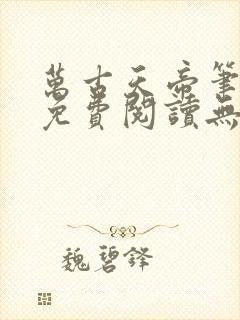 萬古天帝筆
免費閱讀無
魏碧鋒